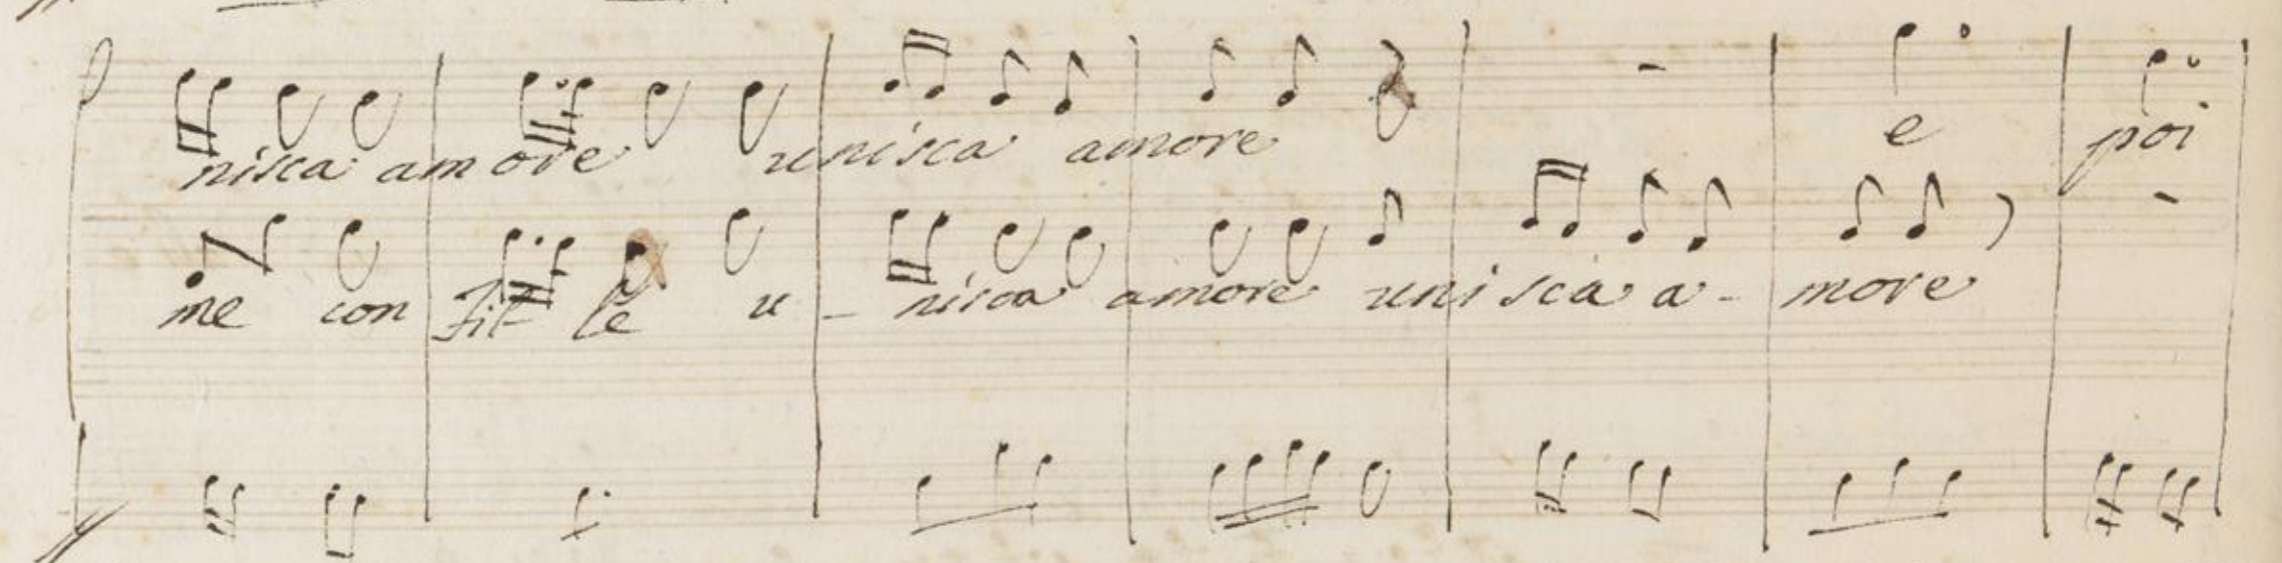 nisca amore unisca amore e poi
me con u - nisca amore unisca a - more